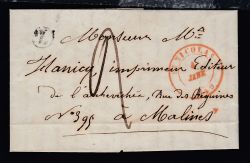 Monsieur Mr
Hanicq, imprimeur Editeur
de l'archevêché, Rue des Béguines
N° 395 à Malines
NICOLAS
JANV